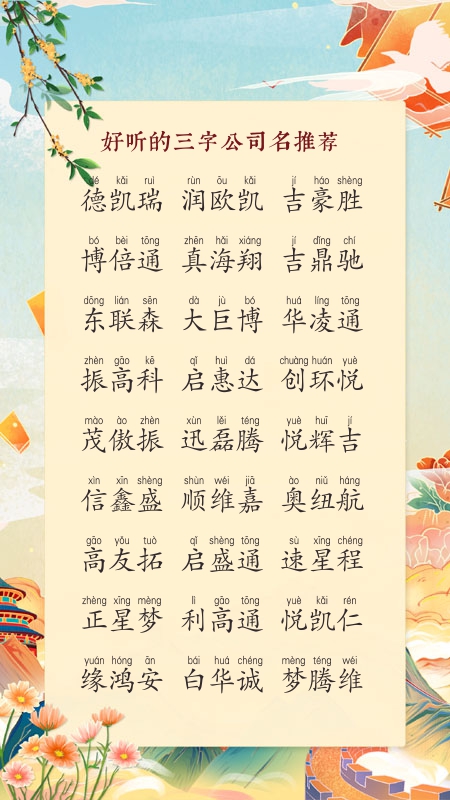 好听的三字公司名推荐
dé kǎi ruì rùn ōu kǎi jí háo shèng
德凯瑞 润欧凯 吉豪胜
bó bèi tōng zhēn hǎi xiáng jí dǐng chí
博倍通 真海翔 吉鼎驰
dōng lián sēn dà jù bó huá líng tōng
东联森 大巨博 华凌通
zhèn gāo kē qǐ huì dá chuàng huán yuè
振高科 启惠达 创环悦
mào ào zhèn xùn lěi téng yuè huī jí
茂傲振 迅磊腾 悦辉吉
xìn xīn shèng shùn wéi jiā ào niǔ háng
信鑫盛 顺维嘉 奥纽航
gāo yǒu tuò qǐ shèng tōng sù xīng chéng
高友拓 启盛通 速星程
zhèng xīng mèng lì gāo tōng yuè kǎi rén
正星梦 利高通 悦凯仁
yuán hóng ān bái huá chéng mèng téng wéi
缘鸿安 白华诚 梦腾维